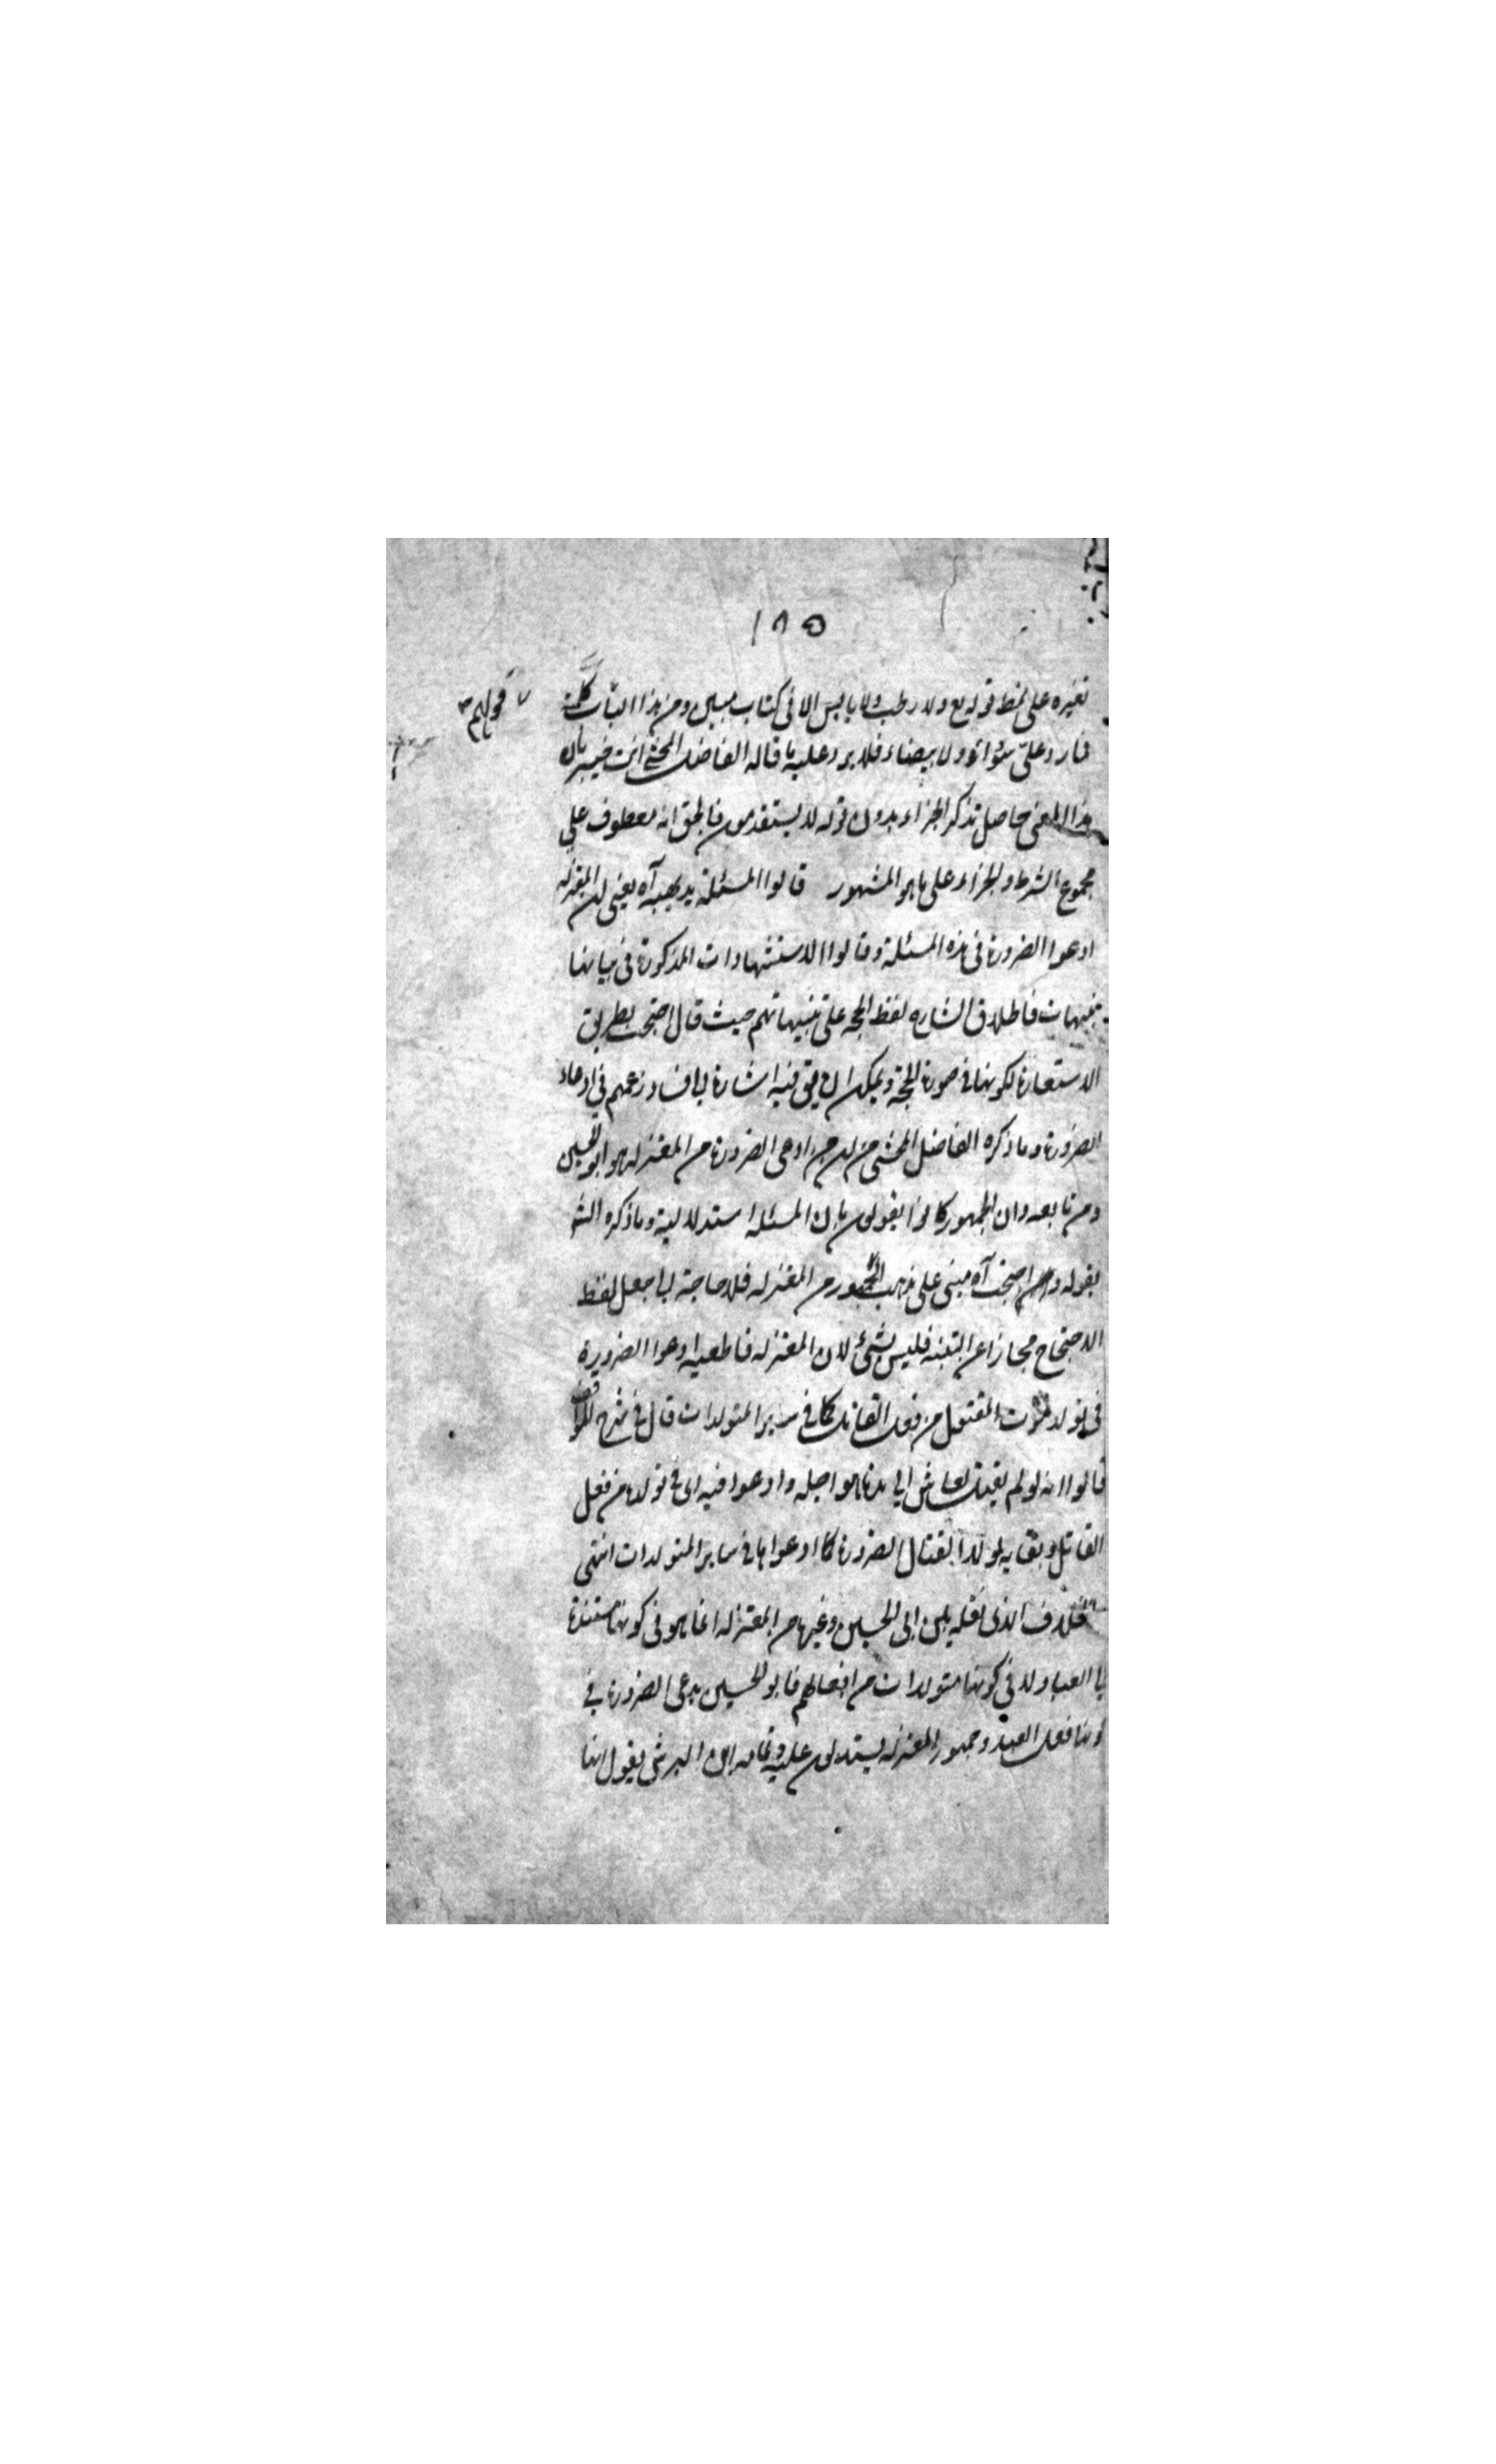 ١٨٥
تغيره على نمط قوله تع ولا رطب ولا يابس الا في كتاب مبين ومن هذا الباب كلمة
قولهم
فما رد على سوداء ولا بيضاء فلا يرد عليه ما قاله الفاضل المحشي انت خبير بان
هذا المعنى حاصل بذكر الجزاء بدون قوله لا يستقدمون فالحق انه معطوف على
مجموع الشرط والجزاء على ما هو المشهور قالوا المسئلة بديهية آه يعني ان المعتزلة
ادعوا الضرورة في هذه المسئلة وقالوا الاستشهادات المذكورة في بيانها
تنبيهات فاطلاق الشارح لفظ الحجة على تنبيهاتهم حيث قال احتجت بطريق
الاستعارة لكونها في صورة الحجة ويمكن ان يق فيه اشارة الى فساد زعمهم في ادعاء
الضرورة وما ذكره الفاضل المحشي من ان من ادعى الضرورة من المعتزلة هو ابو الحسين
ومن تابعه وان الجمهور كانوا يقولون بان المسئلة استدلالية وما ذكره الش
بقوله واحتجت آه مبني على مذهب الجمهور من المعتزلة فلا حاجة الى جعل لفظ
الاحتجاج مجازا عن التنبيه فليس بشئ لان المعتزلة قاطعية ادعوا الضرورة
في تولد موت المقتول من فعل القاتل كما في ساير المتولدات قال في شرح المواقف
قالوا انه لو لم يقتل لعاش الى امد هو اجله وادعوا فيه اى في تولده من فعل
القاتل وبقائه لولا القتل الضرورة كما ادعوها في ساير المتولدات انتهى
فالخلاف الذي نقله بين ابي الحسين وغيره من المعتزلة انما هو في كونها مستندة
الى العباد لا في كونها متولدات من افعالهم فابو الحسين يدعى الضرورة في
انها فعل العبد وجمهور المعتزلة يستدلون عليه يقول انها